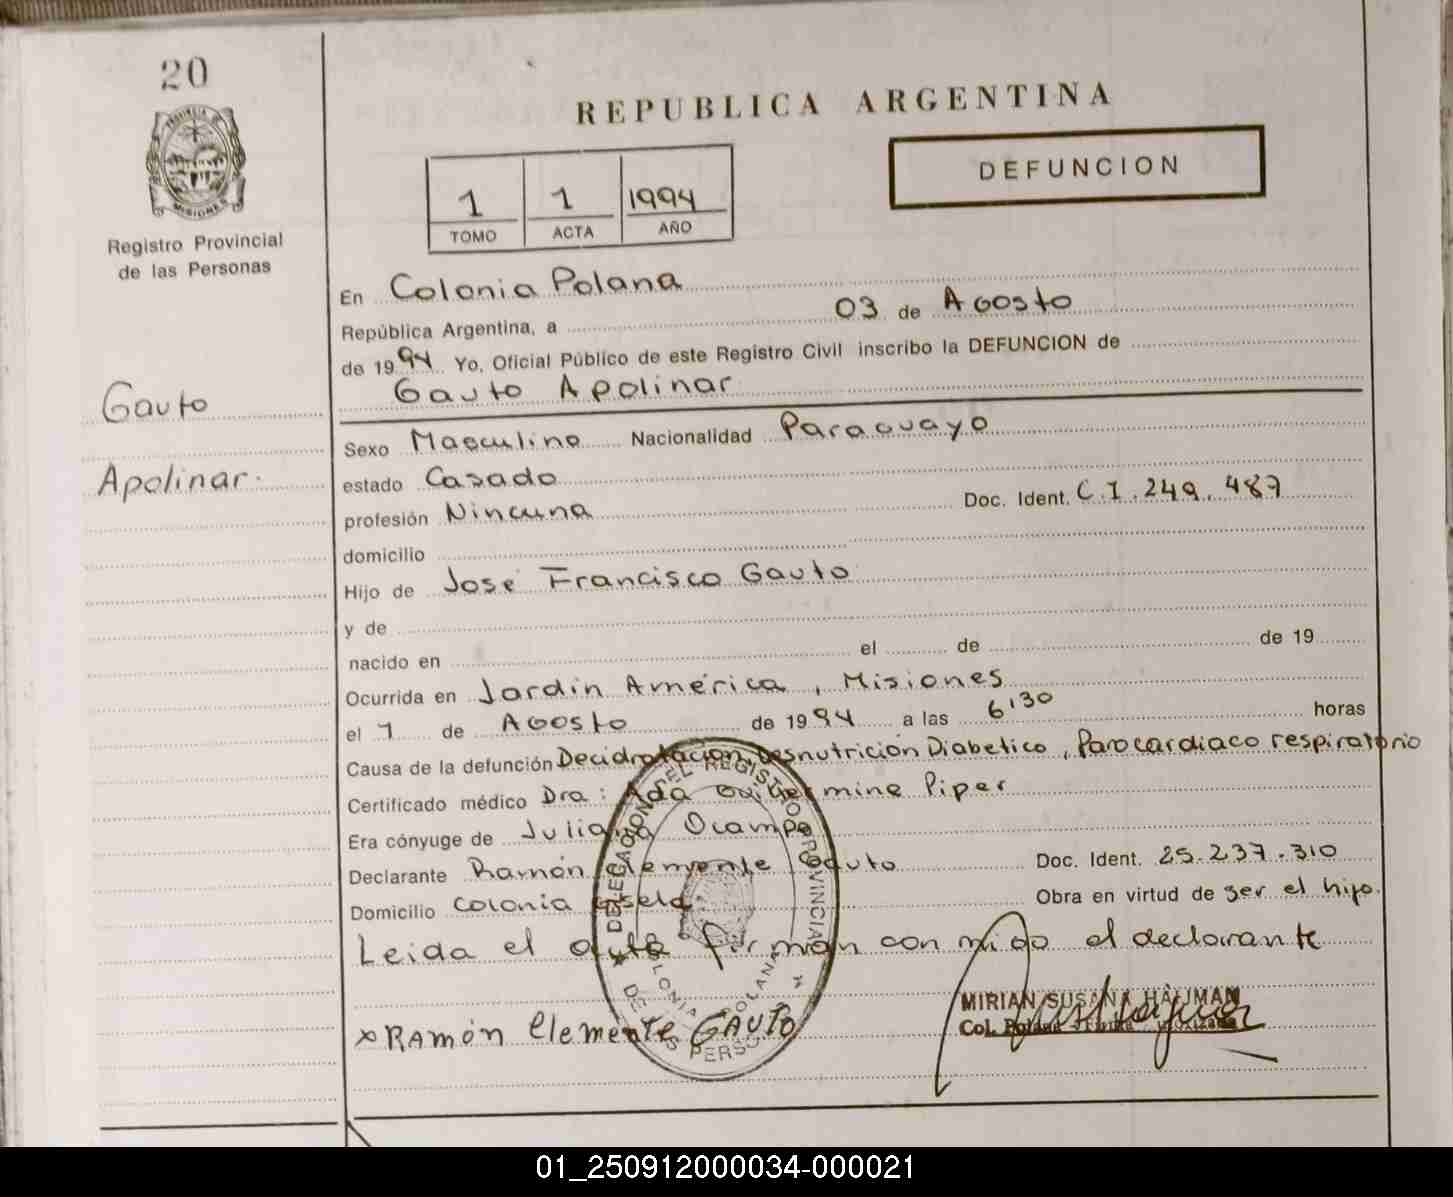 20
REPUBLICA ARGENTINA
PROVINCIA DE MISIONES
Registro Provincial
de las Personas
1 1 1994
TOMO ACTA AÑO
DEFUNCION
En Colonia Polana
República Argentina, a 03 de Agosto
de 1994 Yo, Oficial Público de este Registro Civil inscribo la DEFUNCION de
Gauto Apolinar
Gauto
Apolinar.
Sexo Masculino Nacionalidad Paraguayo
estado Casado
profesión Ninguna Doc. Ident. C.I. 249.487
domicilio
Hijo de José Francisco Gauto
y de
nacido en el de de 19
Ocurrida en Jardín América, Misiones
el 1 de Agosto de 1994 a las 6'30 horas
Causa de la defunción Decidratación, Desnutrición Diabetico, Parocardiaco respiratorio
Certificado médico Dra: Ada Guillermina Piper
Era cónyuge de Juliana Ocampo
Declarante Ramón Clemente Gauto Doc. Ident. 25.237.310
Domicilio Colonia Gisela Obra en virtud de ser el hijo.
Leida el acta firman con migo el declarante
x RAMÓN Clemente GAUTO
MIRIAN SUSANA HAUMAN
Col. Polana
DELEGACION DEL REGISTRO PROVINCIAL
DE LAS PERSONAS
COLONIA POLANA
01_250912000034-000021